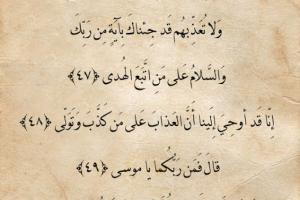 وَلَا تُعَذِّبْهُمْ قَدْ جِئْنَاكَ بِآيَةٍ مِن رَبِّكَ
وَالسَّلَامُ عَلَى مَنِ اتَّبَعَ الْهُدَى ﴿٤٧﴾
إِنَّا قَدْ أُوحِيَ إِلَيْنَا أَنَّ الْعَذَابَ عَلَى مَن كَذَّبَ وَتَوَلَّى ﴿٤٨﴾
قَالَ فَمَن رَبُّكُمَا يَا مُوسَى ﴿٤٩﴾